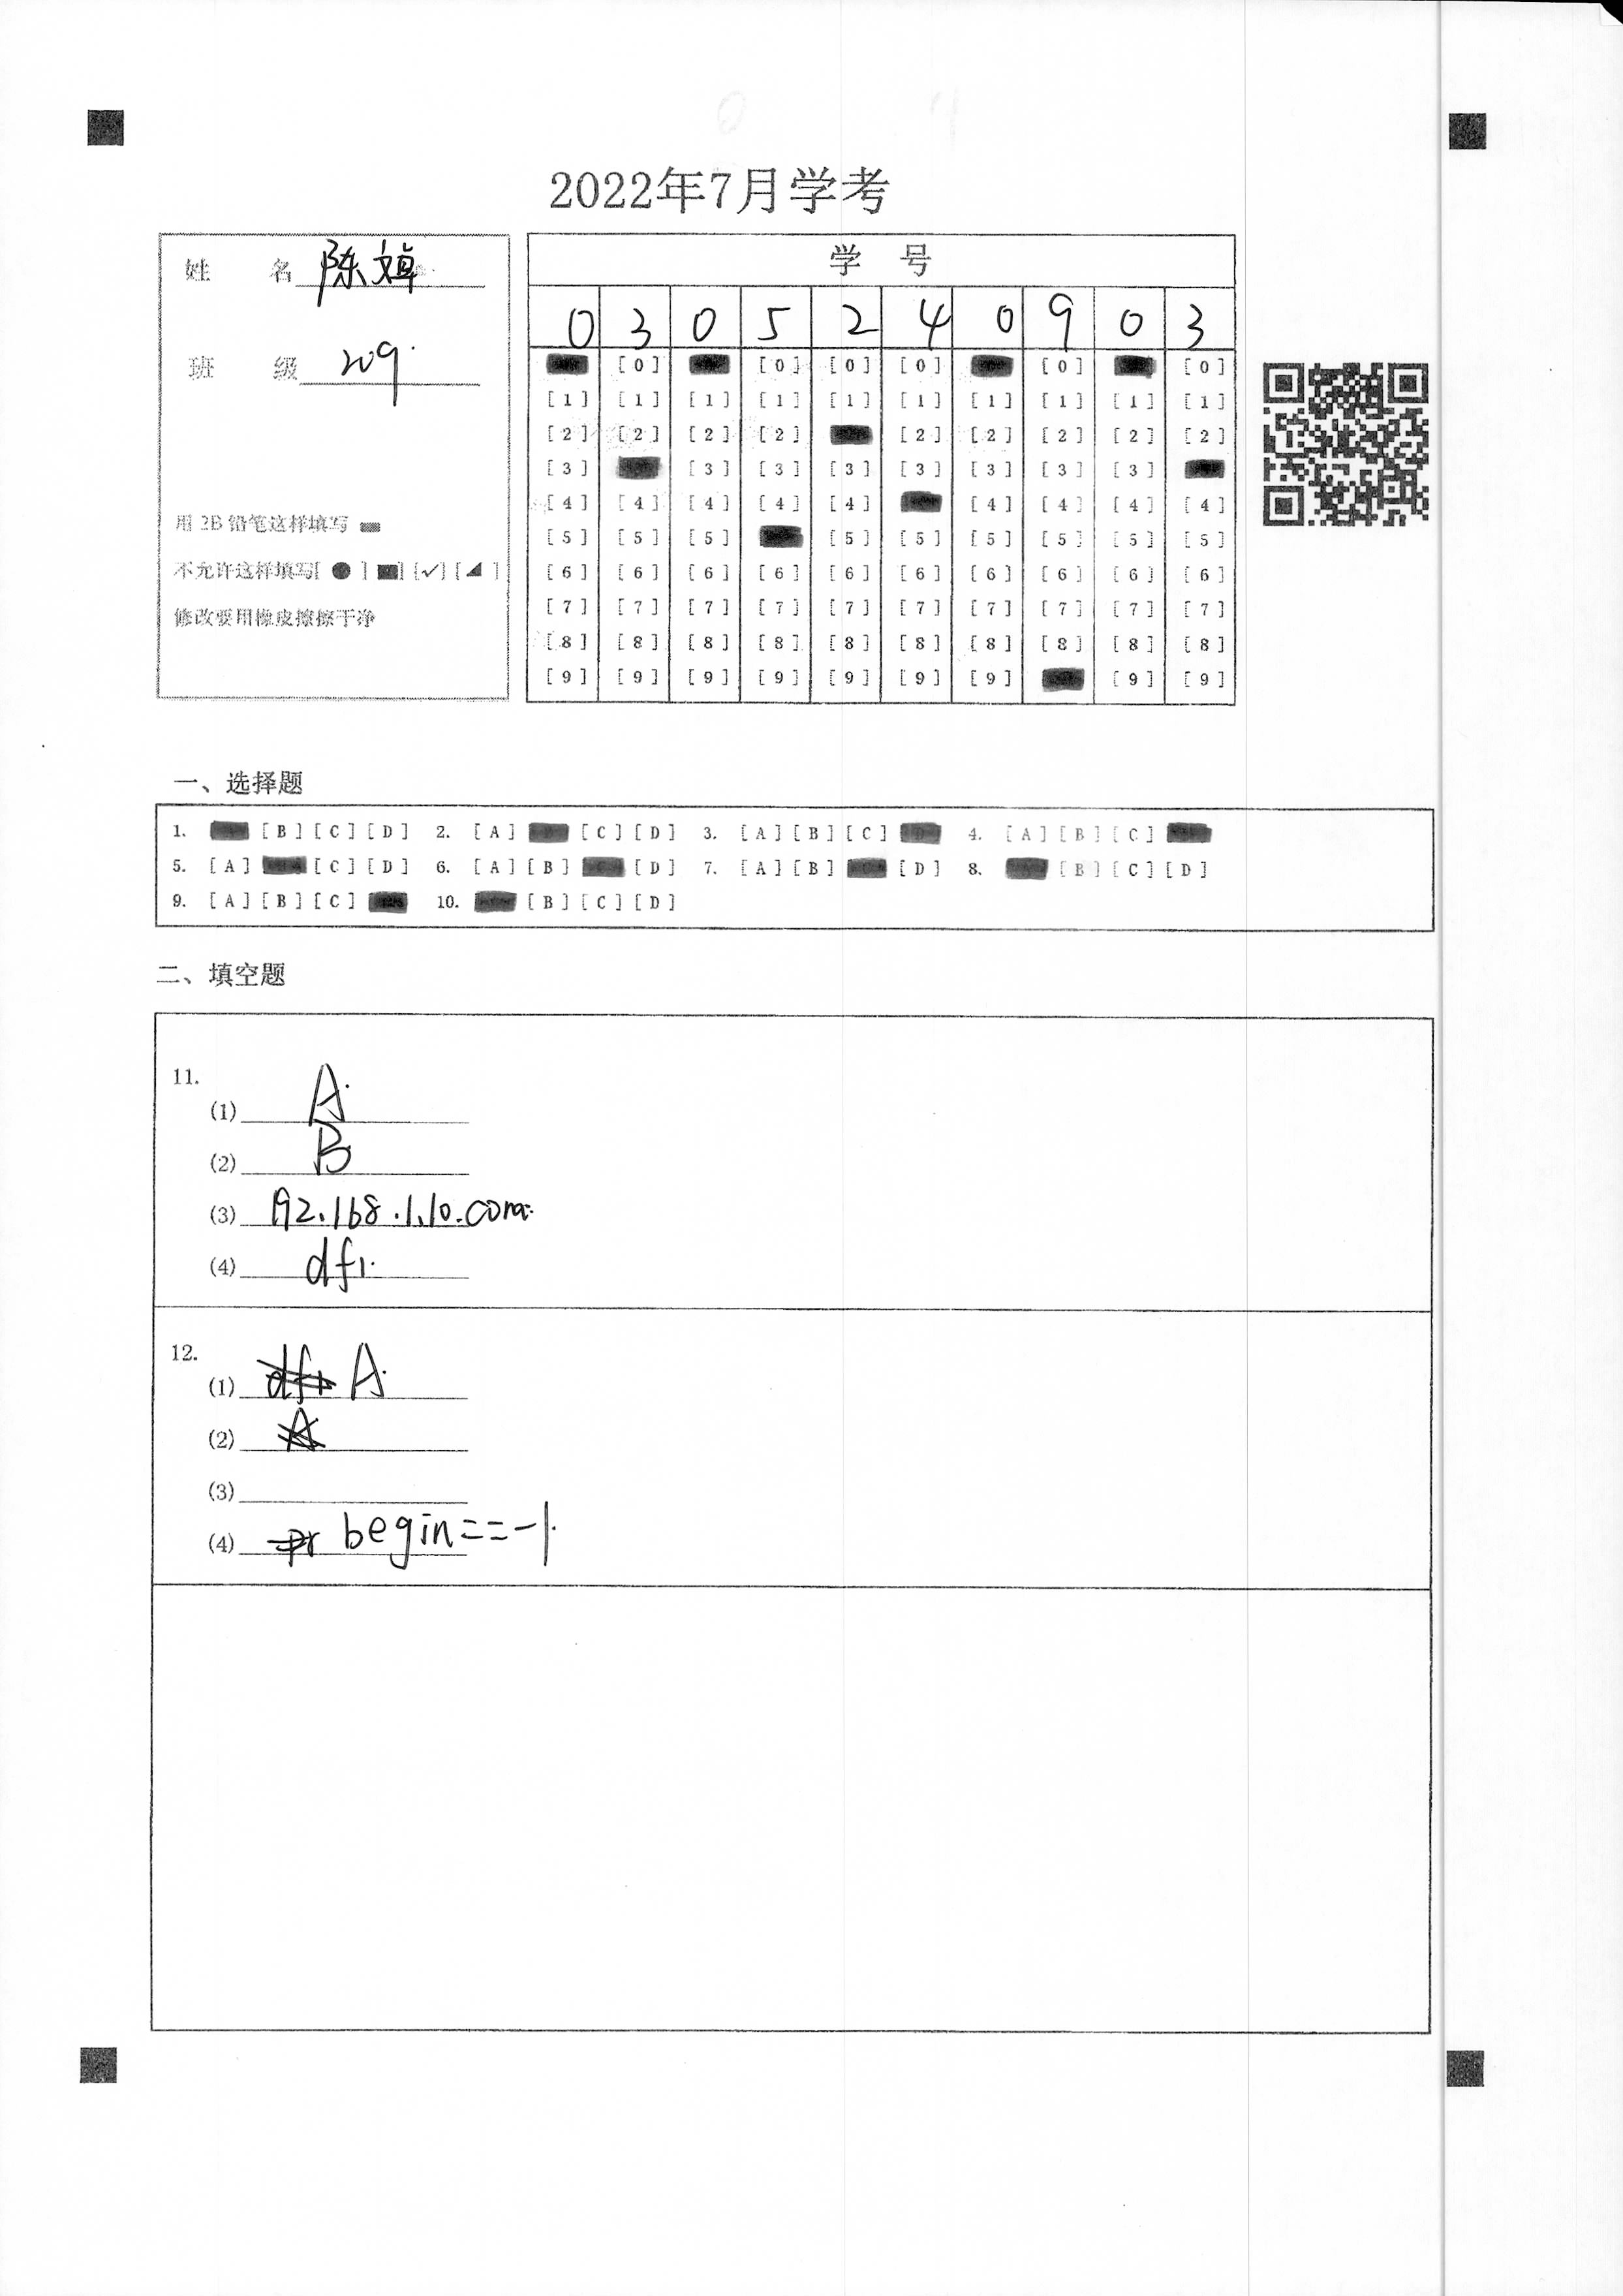 2022年7月学考
姓 名 陈焯
班 级 209.
用 2B 铅笔这样填写
不允许这样填写[ ● ] [■] [✓] [◢ ]
修改要用橡皮擦擦干净
学 号
0 3 0 5 2 4 0 9 0 3
[0] [0] [0] [0] [0] [0]
[1] [1] [1] [1] [1] [1] [1] [1] [1] [1]
[2] [2] [2] [2] [2] [2] [2] [2] [2]
[3] [3] [3] [3] [3] [3] [3] [3]
[4] [4] [4] [4] [4] [4] [4] [4] [4]
[5] [5] [5] [5] [5] [5] [5] [5] [5]
[6] [6] [6] [6] [6] [6] [6] [6] [6] [6]
[7] [7] [7] [7] [7] [7] [7] [7] [7] [7]
[8] [8] [8] [8] [8] [8] [8] [8] [8] [8]
[9] [9] [9] [9] [9] [9] [9] [9] [9]
一、选择题
1. [B] [C] [D] 2. [A] [C] [D] 3. [A] [B] [C] 4. [A] [B] [C]
5. [A] [C] [D] 6. [A] [B] [D] 7. [A] [B] [D] 8. [B] [C] [D]
9. [A] [B] [C] 10. [B] [C] [D]
二、填空题
11.
(1) A.
(2) B
(3) 192.168.1.10.com.
(4) df1.
12.
(1) df1 A.
(2) A
(3)
(4) pr begin==-1.